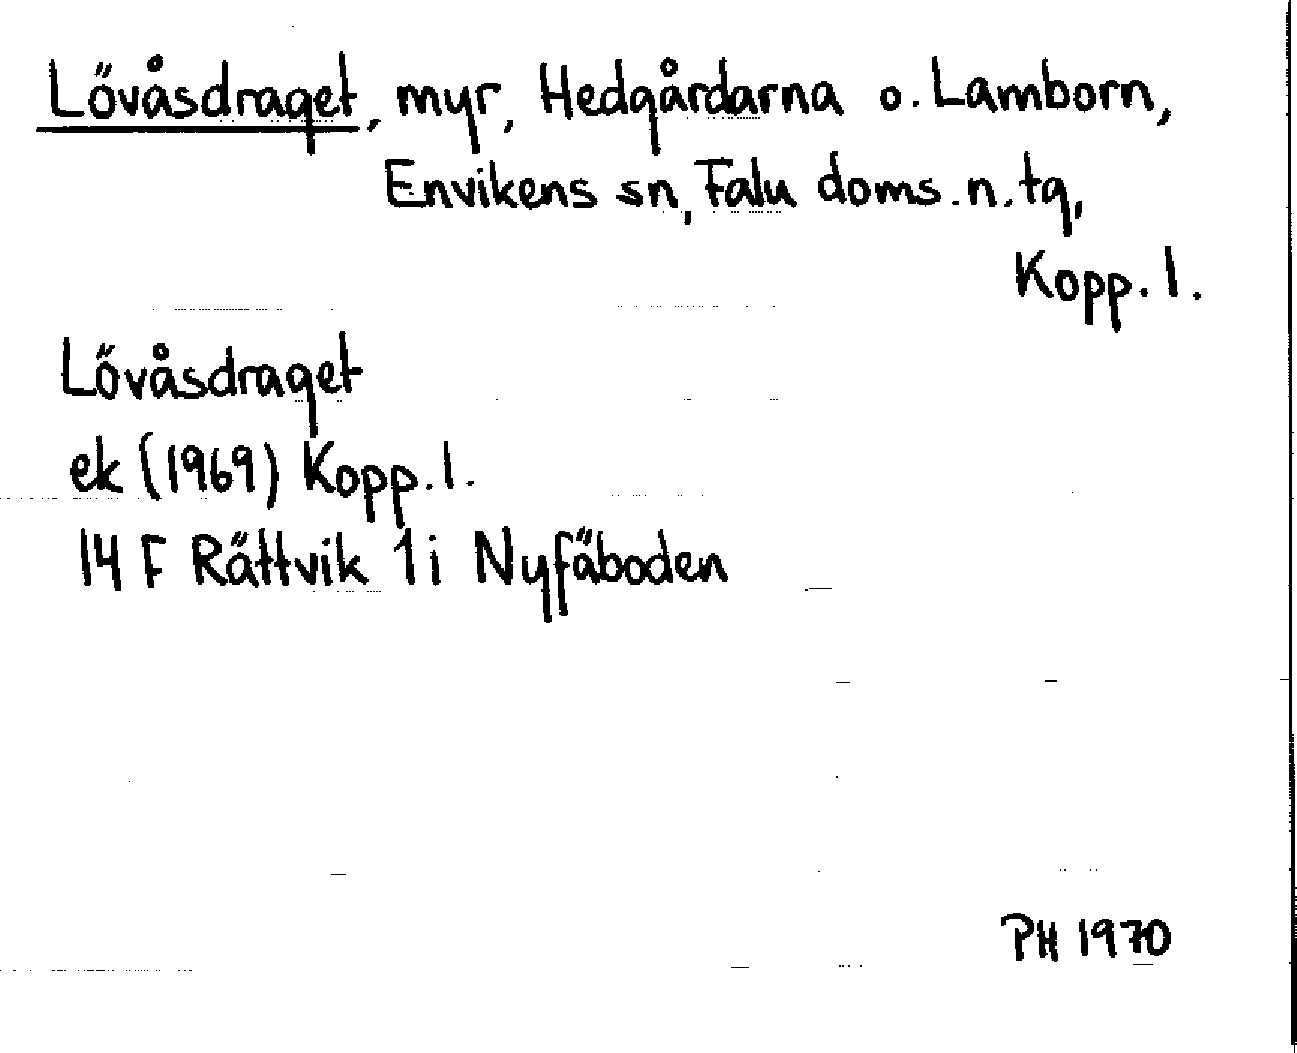 Lövåsdraget, myr, Hedgårdarna o. Lamborn,
Envikens sn, Falu doms. n. tg,
Kopp. l.
Lövåsdraget
ek (1969) Kopp. l.
14 F Rättvik 1 i Nyfäboden
PH 1970